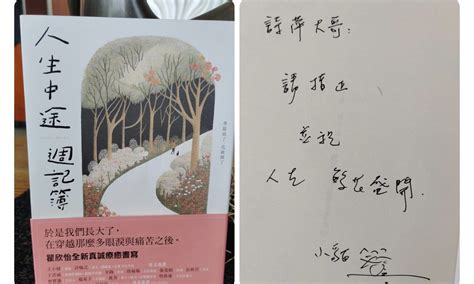 人生中途
週記簿
於是我們長大了，
在穿越那麼多眼淚與痛苦之後。
瞿欣怡全新真誠療癒書寫
詩萍大哥：
請指正
並祝
人生 繁花盛開
小貓